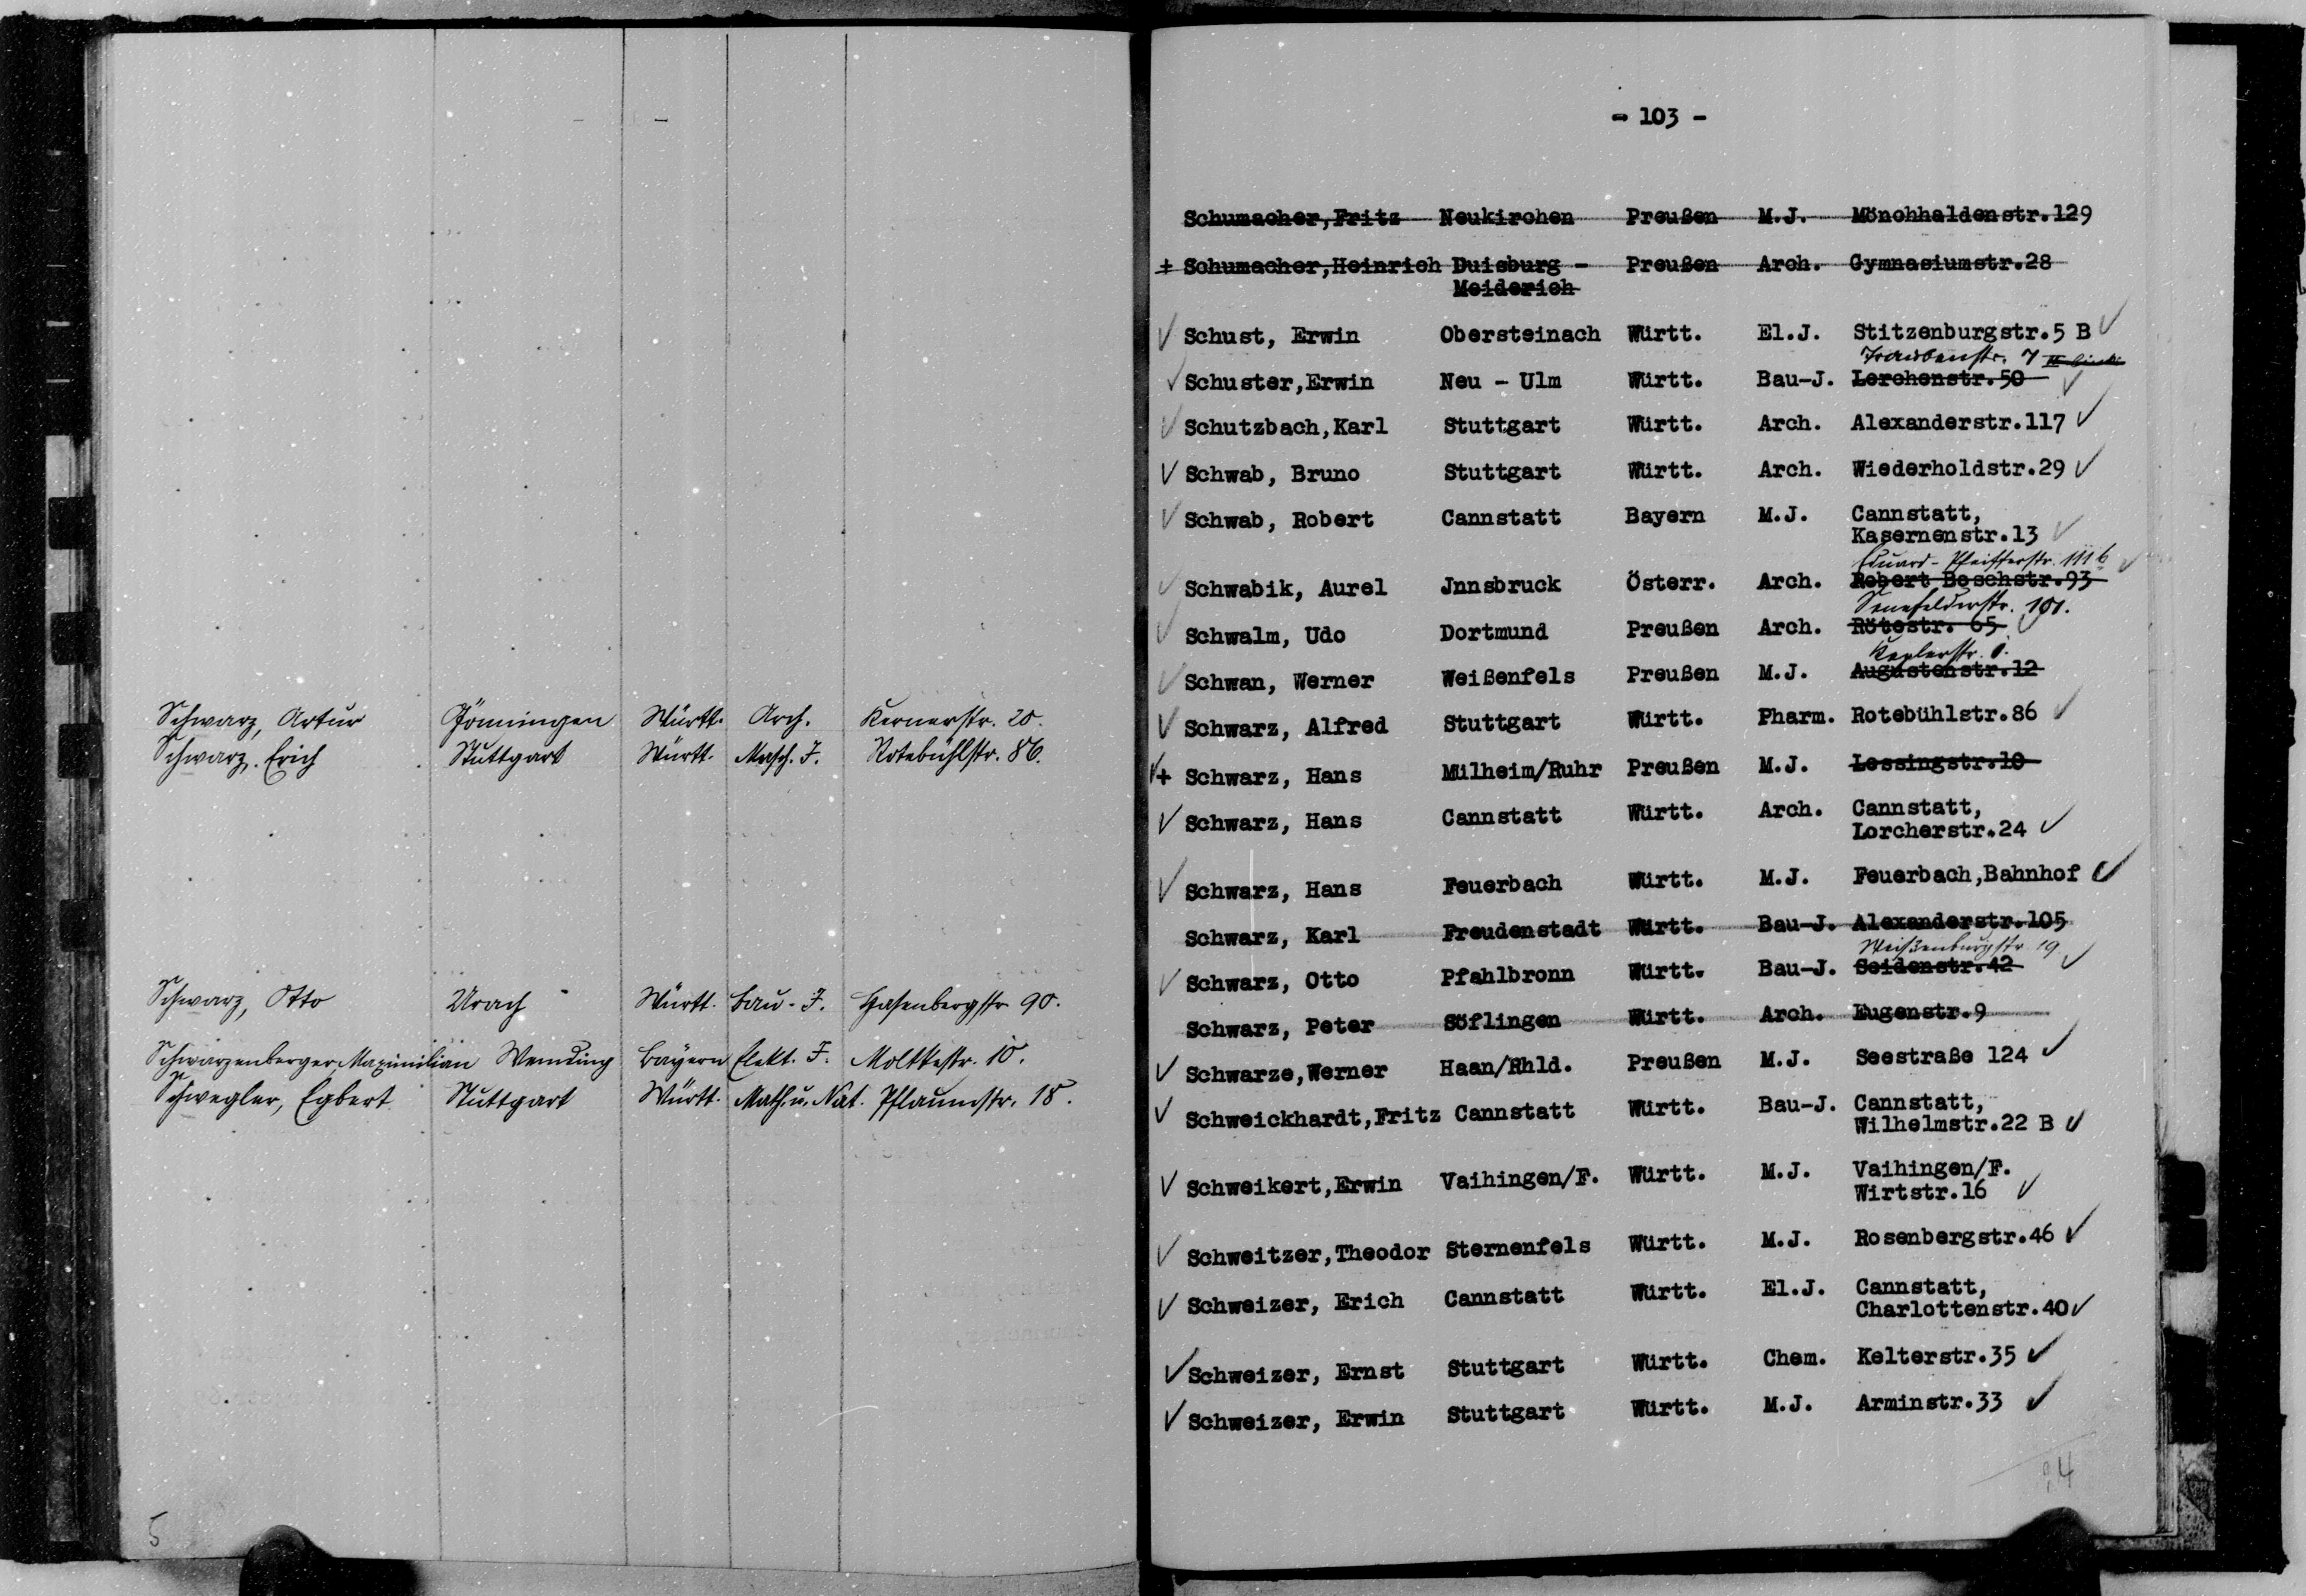 Schwarz, Artur Gönningen Württ. Arch. Kernerstr. 20.
Schwarz, Erich Stuttgart Württ. Masch. J. Rotebühlstr. 86.
Schwarz, Otto Urach Württ. Bau-J. Hasenbergstr. 90.
Schwarzenberger, Maximilian Wemding Bayern Elekt. J. Moltkestr. 10.
Schwegler, Egbert Stuttgart Württ. Math. u. Nat. Pflaumstr. 18.
5
- 103 -
Schumacher,Fritz Neukirchen Preußen M.J. Mönchhaldenstr.129
+ Schumacher,Heinrich Duisburg - Preußen Arch. Gymnasiumstr.28
Meiderich
✓ Schust, Erwin Obersteinach Württ. El.J. Stitzenburgstr.5 B ✓
Traubenstr. 7 II
✓ Schuster,Erwin Neu - Ulm Württ. Bau-J. Lerchenstr.50 ✓
✓ Schutzbach,Karl Stuttgart Württ. Arch. Alexanderstr.117 ✓
✓ Schwab, Bruno Stuttgart Württ. Arch. Wiederholdstr.29 ✓
✓ Schwab, Robert Cannstatt Bayern M.J. Cannstatt,
Kasernenstr.13 ✓
Eduard-Pfeifferstr. 111 b ✓
✓ Schwabik, Aurel Jnnsbruck Österr. Arch. Robert Boschstr.93
Senefelderstr. 101.
✓ Schwalm, Udo Dortmund Preußen Arch. Rötestr. 65 ✓
Keplerstr.
✓ Schwan, Werner Weißenfels Preußen M.J. Augustenstr.12
✓ Schwarz, Alfred Stuttgart Württ. Pharm. Rotebühlstr.86 ✓
✓+ Schwarz, Hans Milheim/Ruhr Preußen M.J. Lessingstr.10
✓ Schwarz, Hans Cannstatt Württ. Arch. Cannstatt,
Lorcherstr.24 ✓
✓ Schwarz, Hans Feuerbach Württ. M.J. Feuerbach,Bahnhof ✓
Schwarz, Karl Freudenstadt Württ. Bau-J. Alexanderstr.105
Weißenburgstr. 19 ✓
✓ Schwarz, Otto Pfahlbronn Württ. Bau-J. Seidenstr.42
Schwarz, Peter Söflingen Württ. Arch. Eugenstr.9
✓ Schwarze,Werner Haan/Rhld. Preußen M.J. Seestraße 124 ✓
✓ Schweickhardt,Fritz Cannstatt Württ. Bau-J. Cannstatt,
Wilhelmstr.22 B ✓
✓ Schweikert,Erwin Vaihingen/F. Württ. M.J. Vaihingen/F.
Wirtstr.16 ✓
✓ Schweitzer,Theodor Sternenfels Württ. M.J. Rosenbergstr.46 ✓
✓ Schweizer, Erich Cannstatt Württ. El.J. Cannstatt,
Charlottenstr.40 ✓
✓ Schweizer, Ernst Stuttgart Württ. Chem. Kelterstr.35 ✓
✓ Schweizer, Erwin Stuttgart Württ. M.J. Arminstr.33 ✓